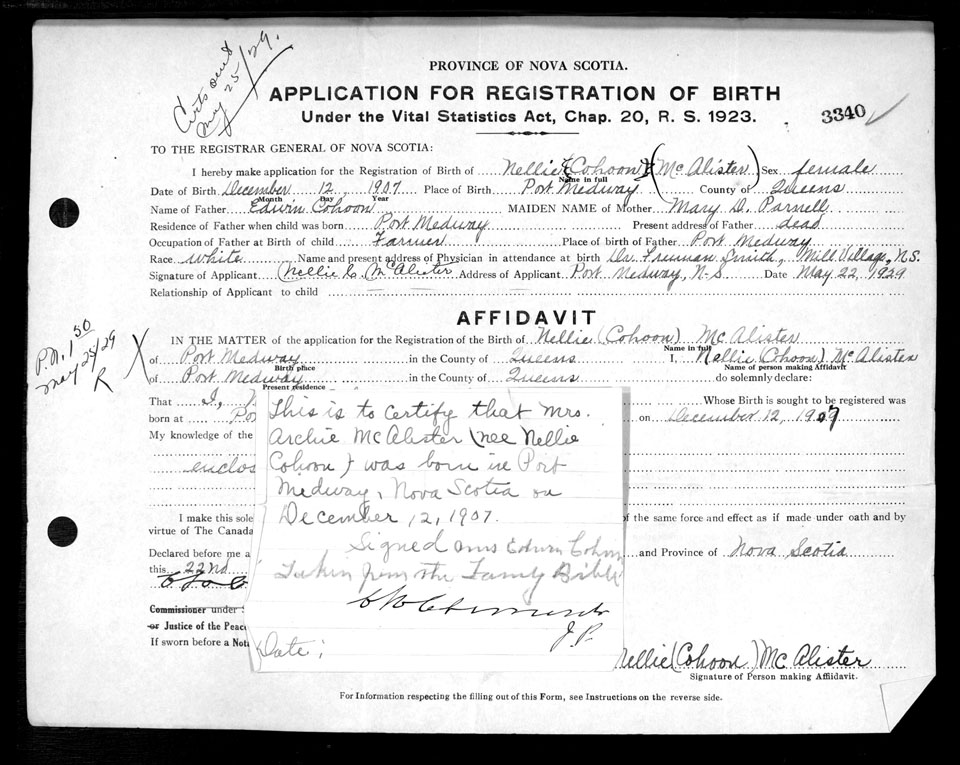 Certs sent
May 25/29.
PROVINCE OF NOVA SCOTIA.
APPLICATION FOR REGISTRATION OF BIRTH
Under the Vital Statistics Act, Chap. 20, R. S. 1923.
3340
TO THE REGISTRAR GENERAL OF NOVA SCOTIA:
I hereby make application for the Registration of Birth of Nellie (Cohoon) (McAlister) Sex female
Name in full
Date of Birth December 12, 1907 Place of Birth Port Medway County of Queens
Month Day Year
Name of Father Edwin Cohoon MAIDEN NAME of Mother Mary D. Parnell
Residence of Father when child was born Port Medway Present address of Father dead
Occupation of Father at Birth of child Farmer Place of birth of Father Port Medway
Race white Name and present address of Physician in attendance at birth Dr. Freeman Smith, Mill Village, N.S.
Signature of Applicant Nellie C. McAlister Address of Applicant Port Medway, N-S Date May 22, 1929
Relationship of Applicant to child
AFFIDAVIT
P.N. 1 50
May 25/29
R
IN THE MATTER of the application for the Registration of the Birth of Nellie (Cohoon) McAlister
Name in full
of Port Medway in the County of Queens I, Nellie (Cohoon) McAlister
Birth place Name of person making Affidavit
of Port Medway in the County of Queens do solemnly declare:
Present residence
That I, Whose Birth is sought to be registered was
born at Por on December 12, 1907
My knowledge of the
enclos
This is to certify that Mrs.
Archie McAlister (nee Nellie
Cohoon) was born in Port
Medway, Nova Scotia on
December 12, 1907.
Signed Mrs Edwin Cohoon
Taken from the Family Bible
J.P.
Date;
I make this sole of the same force and effect as if made under oath and by
virtue of The Canada
Declared before me a and Province of Nova Scotia
this 22nd
Commissioner under
or Justice of the Peac
If sworn before a Nota
Nellie (Cohoon) McAlister
Signature of Person making Affidavit.
For Information respecting the filling out of this Form, see Instructions on the reverse side.